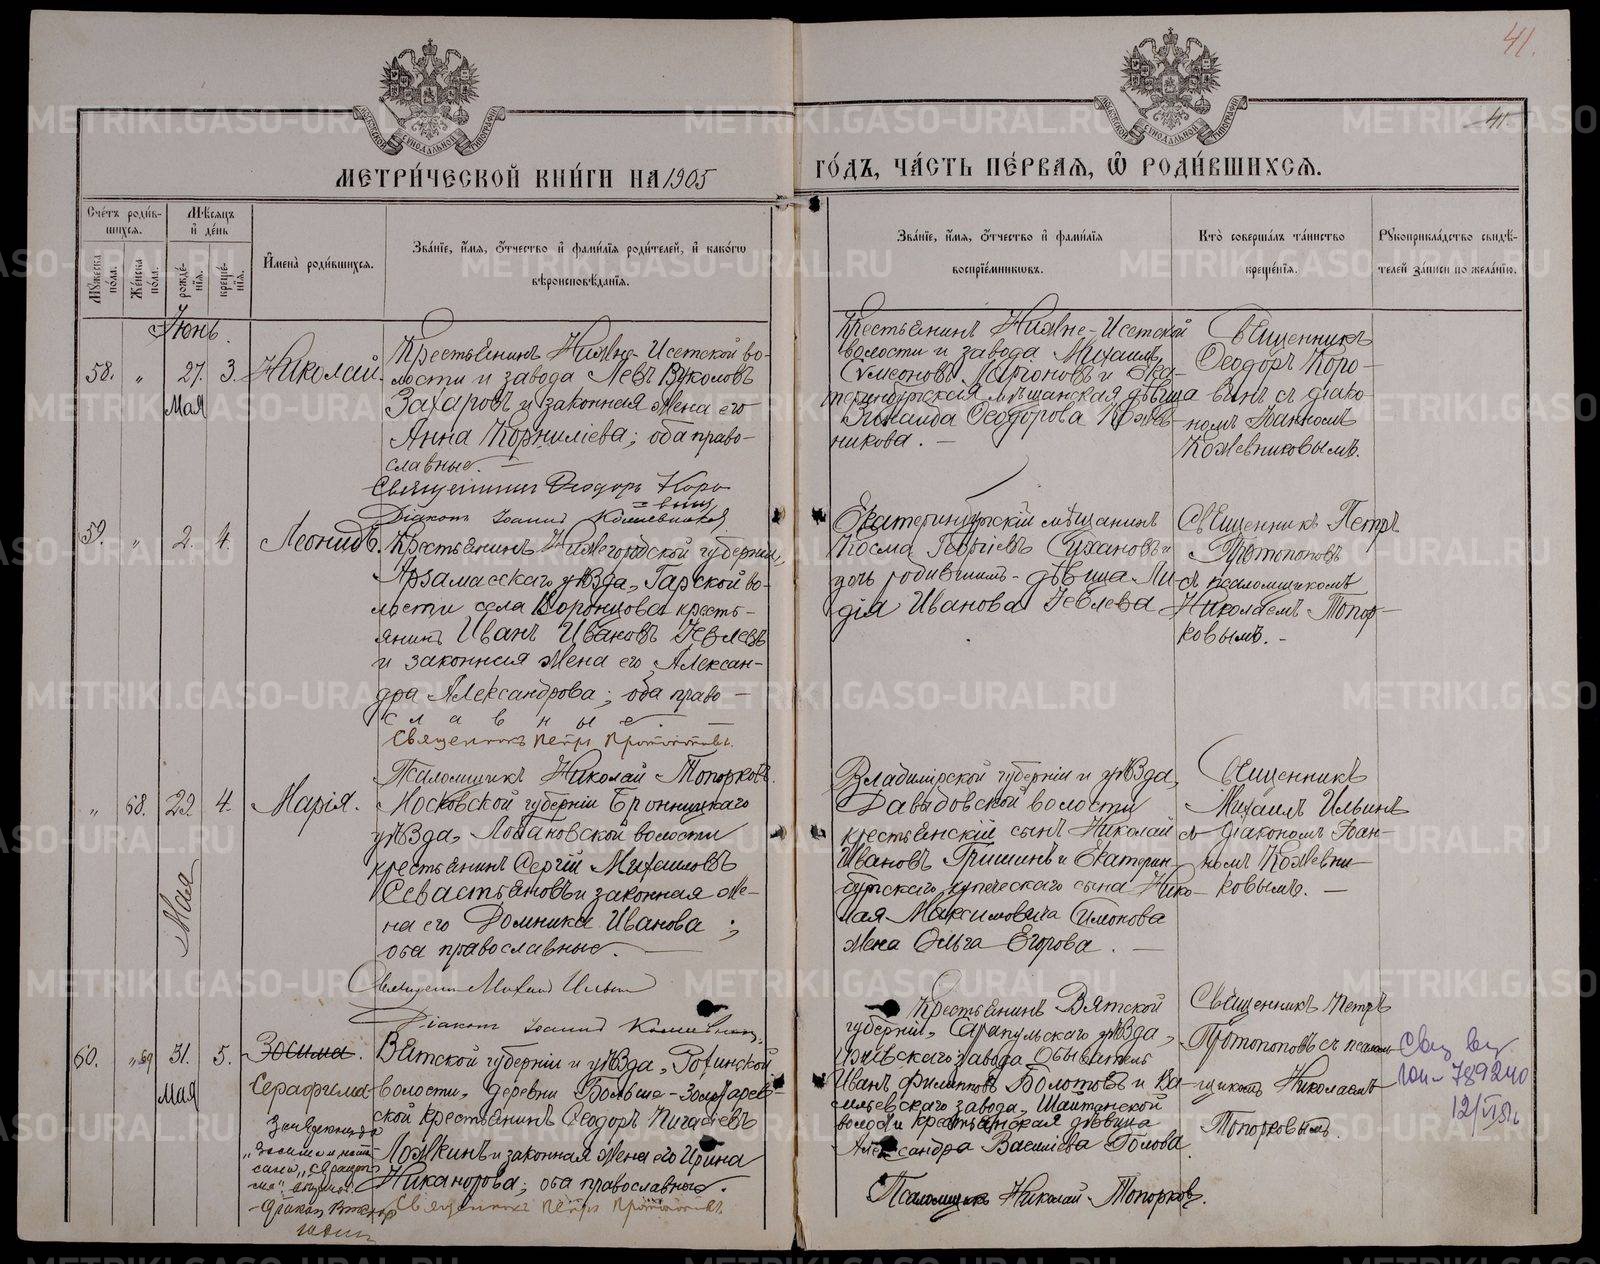 41.
41
МЕТРИ́ЧЕСКОЙ КНИ́ГИ НА 1905
ГО́ДЪ, ЧА́СТЬ ПЕ́РВАЯ, Ѽ РОДИ́ВШИХСЯ.
Сче́тъ роди́в-
шихся.
Мꙋ́жеска по́ла.
Же́нска по́ла.
Мѣ́сяцъ и де́нь
рожде́-
нїя.
креще́-
нїя.
И҆мена̀ роди́вшихся.
Зва́нїе, и҆́мя, ѻ҆́тчество и҆ фами́лїя роди́телей, и҆ како́гѡ
вѣроисповѣ́данїя.
Зва́нїе, и҆́мя, ѻ҆́тчество и҆ фами́лїя
воспрїе́мниковъ.
Кто̀ соверша́лъ та́инство
креще́нїя.
Рꙋкоприкла́дство свидѣ́-
телей за́писи по жела́нїю.
Іюнь.
58. " 27. 3. Николай.
Мая
Крестьянинъ Нижне-Исетской во-
лости и завода Левъ Вуколовъ
Захаровъ и законная жена его
Анна Корниліева; оба право-
славные.
Священникъ Ѳеодоръ Коро-
винъ
Діаконъ Іоаннъ Кожевников
Крестьянинъ Нижне-Исетской
волости и завода Михаилъ
Сѵмеоновъ Ларіоновъ и Ека-
теринбургская мѣщанская дѣвица
Зинаида Ѳеодорова Кожев-
никова.
Священникъ
Ѳеодоръ Коро-
винъ съ діако-
номъ Іоанномъ
Кожевниковымъ.
59. " 2. 4. Леонидъ.
Крестьянинъ Нижегородской губерніи,
Арзамасскаго уѣзда,
лости села Воронцова кресть-
янинъ Иванъ Ивановъ
и законная жена его Алексан-
дра Александрова; оба право-
славные
Священникъ Петръ Протопоповъ.
Псаломщикъ Николай Топорковъ.
Екатеринбургскій мѣщанинъ
Косма Георгіевъ Сухановъ и
дочь родившихъ - дѣвица Ли-
дія Иванова
Священникъ Петръ
Протопоповъ
съ псаломщикомъ
Николаемъ Топор-
ковымъ.
" 68. 22 4. Марія.
Мая
Московской губерніи Бронницкаго
уѣзда, Лобановской волости
крестьянинъ Сергій Михаиловъ
Севастьяновъ и законная же-
на его Домника Иванова;
оба православные.
Священникъ Михаилъ Ильинъ
Діаконъ Іоаннъ Кожевников
Владимірской губерніи и уѣзда,
Давыдовской волости
крестьянскій сынъ Николай
Ивановъ Гришинъ и Екатерин-
бургскаго купеческаго сына Нико-
лая Максимовича Симонова
жена Ольга Егорова.
Священникъ
Михаилъ Ильинъ
съ діакономъ Іоан-
номъ Кожевни-
ковымъ.
60. " 69 31. 5. Зосима.
Мая
Серафима
Зачеркнутое
"Зосима" и напи-
сано "Серафи-
ма"
Діакон
Вятской губерніи и уѣзда,
волости, деревни
ской крестьянинъ Ѳеодоръ
Ложкинъ и законная жена его Ирина
Никанорова; оба православные.
Священникъ Петръ Протопоповъ.
Крестьянинъ Вятской
губерніи, Сарапульскаго уѣзда,
Ижевскаго завода обыватель
Иванъ Филипповъ Болотовъ и Ва-
сильевскаго завода, Шайтанской
волости крестьянская дѣвица
Александра Василіева
Псаломщикъ Николай Топорковъ.
Священникъ Петръ
Протопоповъ съ псалом-
щикомъ Николаемъ
Топорковымъ.
789240